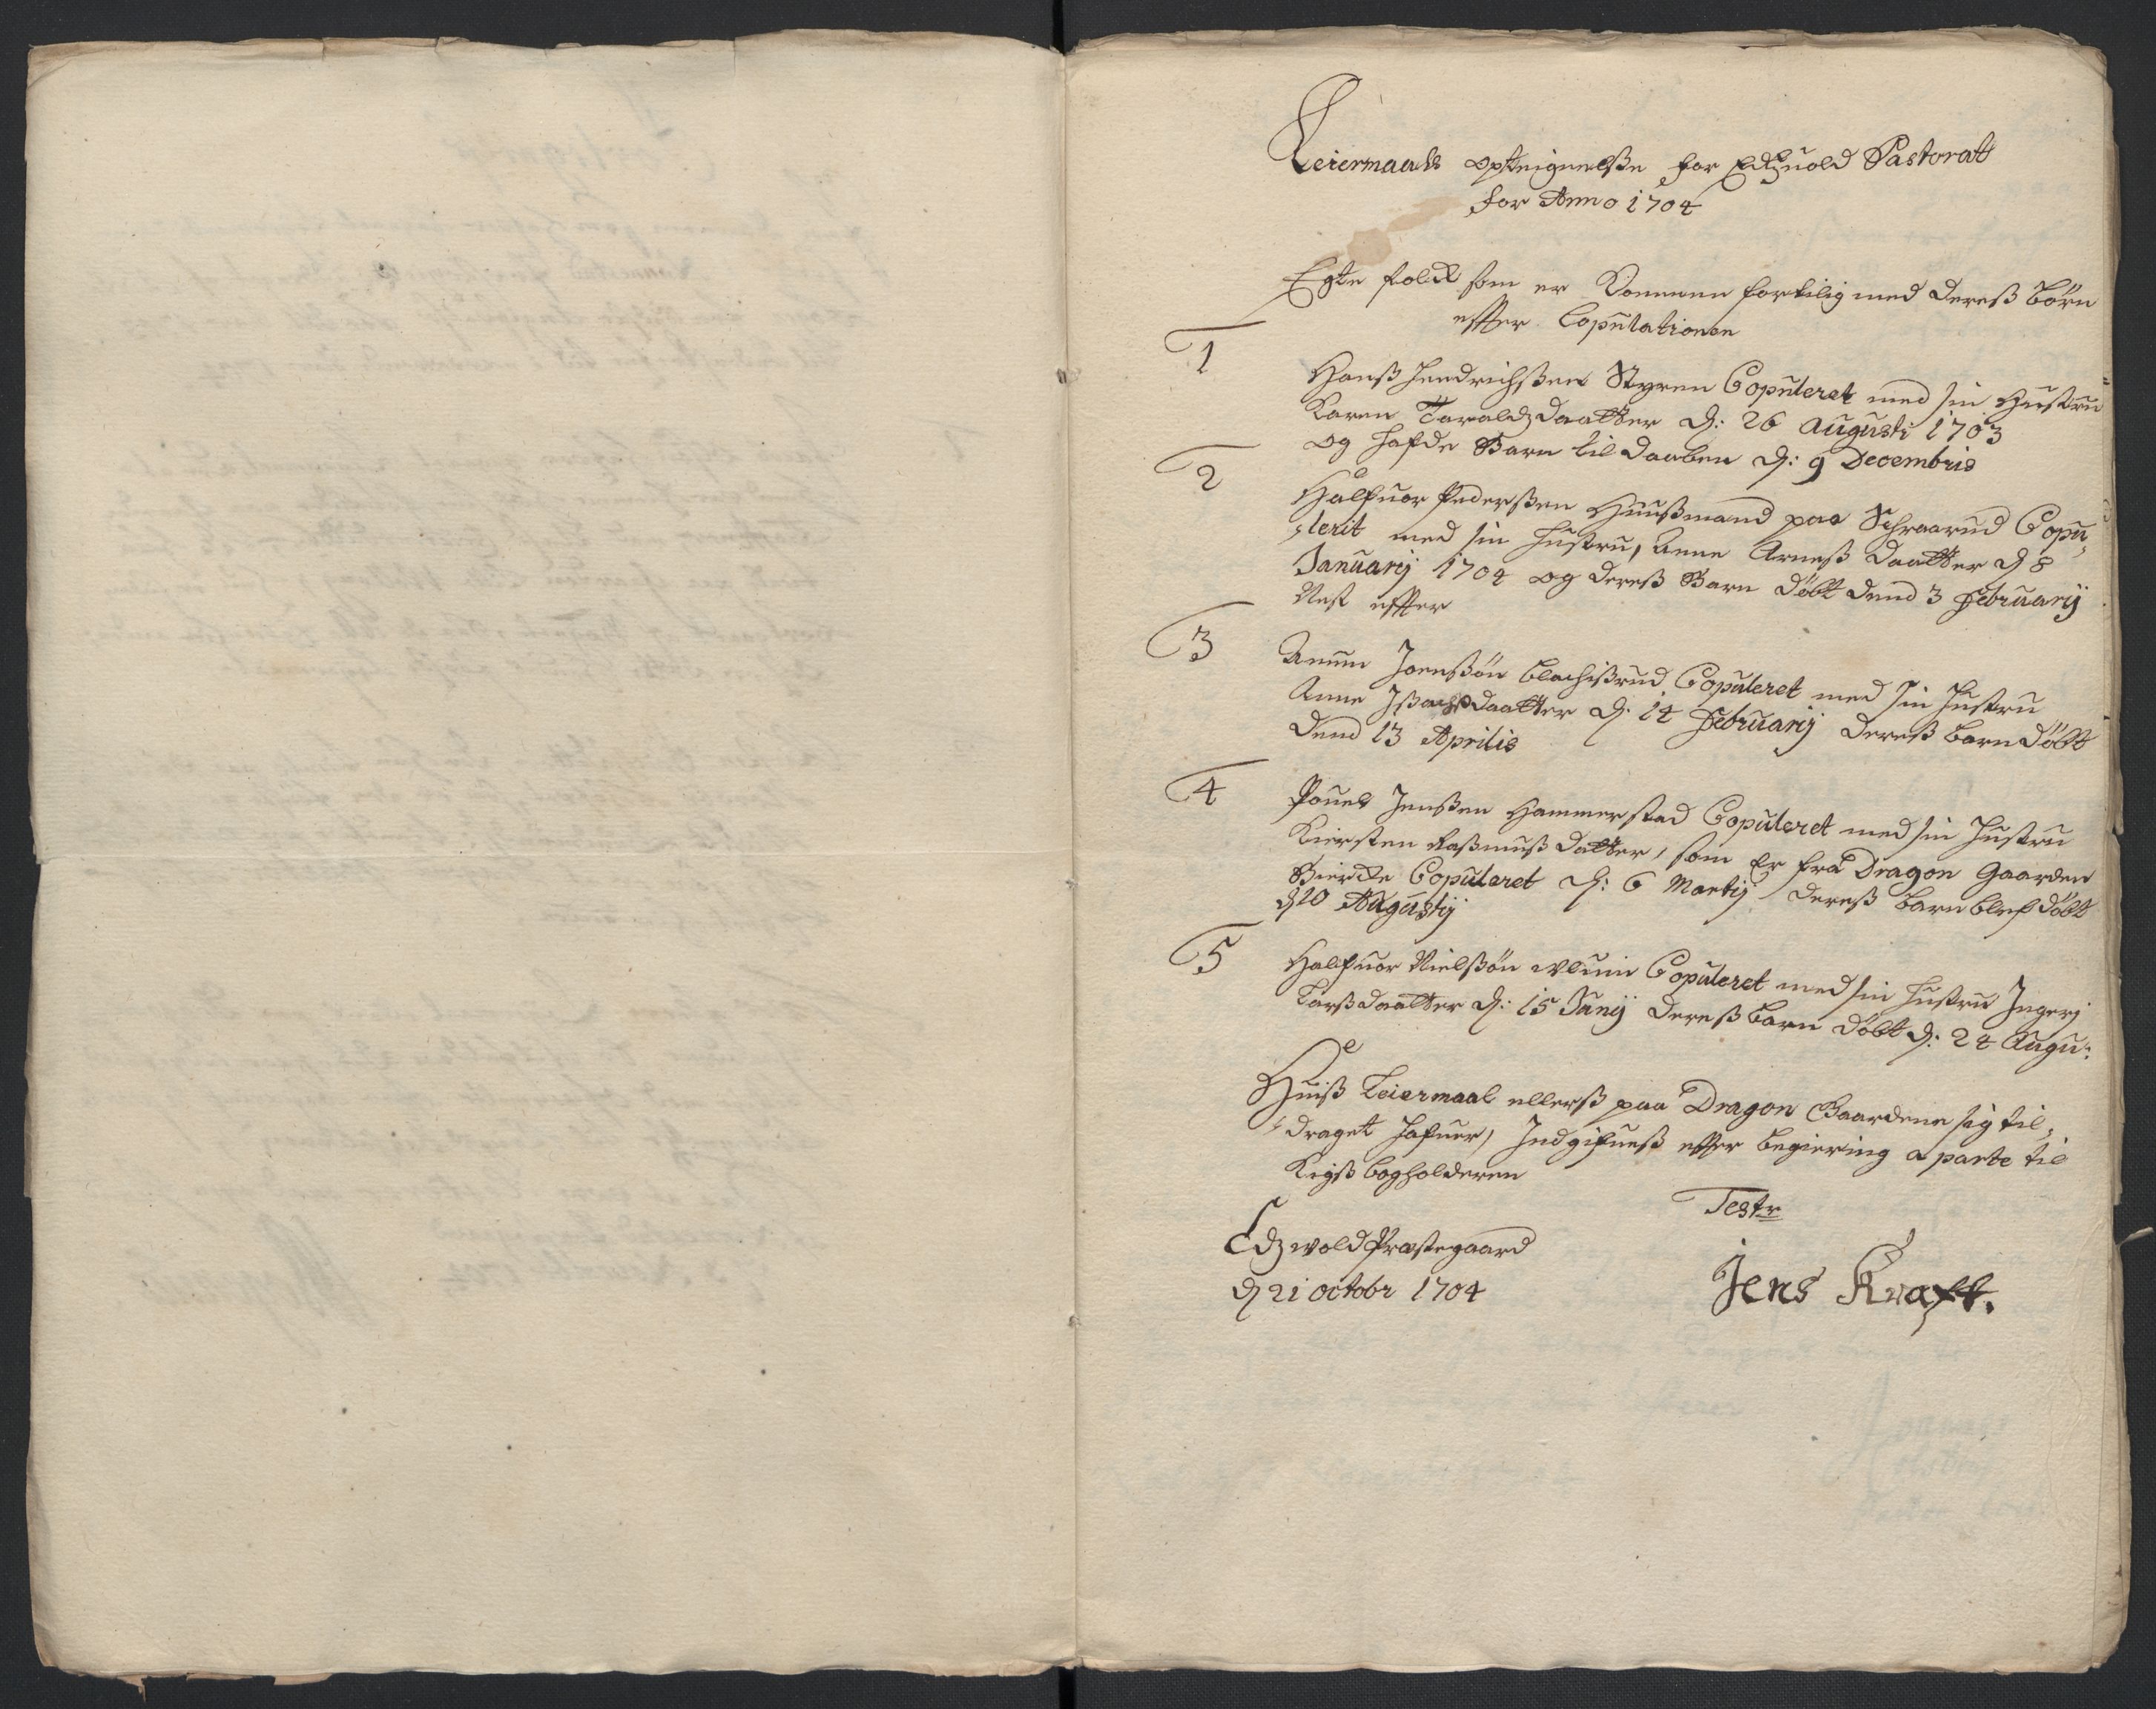 Leiermaals opteignelsße for Edtzuold Pastorat
for Anno 1704
Egte folck som er Kommen fortilig med dereß börn
effter Copulationen
1
Hanß Hendrichßen Styren Copuleret med sin Hustru
Karen Taraldzdaatter d: 26 Augusti 1703
og hafde Barn til daaben d: 9 Decembris
2
Halfuor Pederßen Huußmand paa Schraarud Copu„
„lerit med sin hustru, Anne Arneß daatter d 8
Januarij 1704 og dereß Barn döbt dend 3 Februarij
Nest effter
3
Anun Joenßön Blachißrud Copuleret med sin hustru
Anne Ißachsdaatter d. 14 Februarij dereß barn döbt
dend 13 Aprilis
4
Pouel Jenßen Hammerstad Copuleret med sin hustru
Kiersten Raßmuß datter, som Er fra Dragon Gaarden
Bierche Copuleret d: 6 Martij dereß barn blef döbt
d 10 Augustij
5
Halfuor Nielßön Copuleret med sin hustru Ingerj
Larßdaatter d: 15 Junij dereß barn döbt d: 24 Augu:
Huiß Leiermaal ellerß paa Dragon Gaardene sig til„
„draget hafuer, Indgifueß effter begiering a parte til
Krigß bogholderen
Testr
Edzwold Præstegaard
d 21 octobr 1704
Jens Kraft.